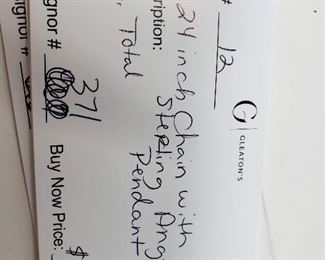 # 12
G | GLEATON'S
24 inch Chain with
ription: Sterling Ang
Pendant
Total
signor #
gnor # 371
Buy Now Price: $